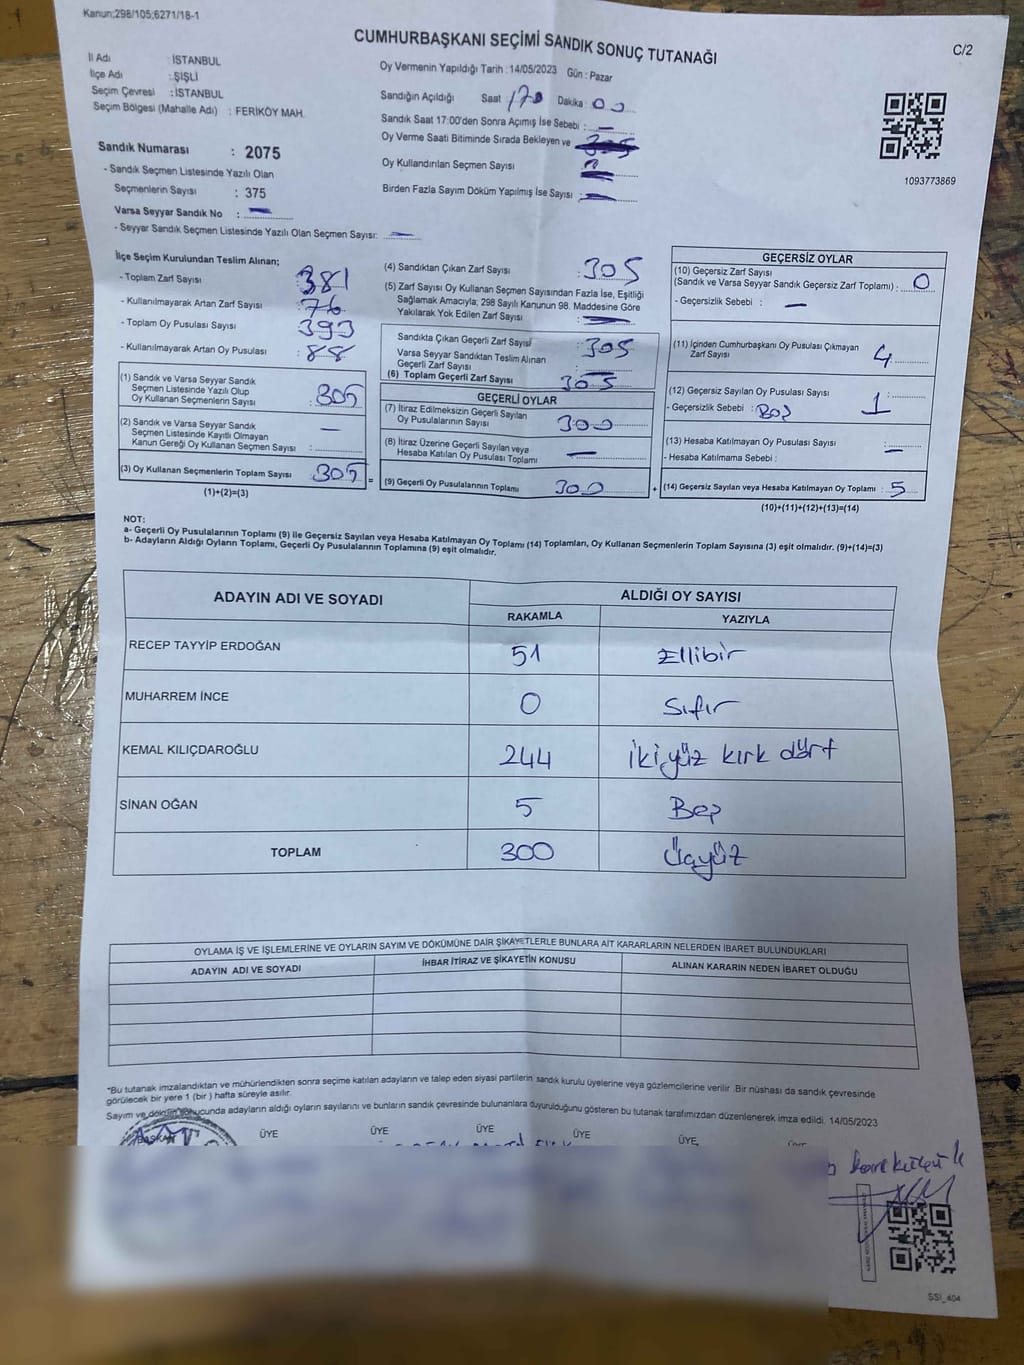 Kanun;298/105;6271/18-1
CUMHURBAŞKANI SEÇİMİ SANDIK SONUÇ TUTANAĞI
C/2
İl Adı : İSTANBUL
İlçe Adı : ŞİŞLİ
Seçim Çevresi : İSTANBUL
Seçim Bölgesi (Mahalle Adı) : FERİKÖY MAH.
Sandık Numarası : 2075
- Sandık Seçmen Listesinde Yazılı Olan
Seçmenlerin Sayısı : 375
Varsa Seyyar Sandık No : —
- Seyyar Sandık Seçmen Listesinde Yazılı Olan Seçmen Sayısı: —
Oy Vermenin Yapıldığı Tarih : 14/05/2023 Gün : Pazar
Sandığın Açıldığı Saat 170 Dakika : 00
Sandık Saat 17:00'den Sonra Açımış İse Sebebi : —
Oy Verme Saati Bitiminde Sırada Bekleyen ve
Oy Kullandırılan Seçmen Sayısı
Birden Fazla Sayım Döküm Yapılmış İse Sayısı : —
1093773869
İlçe Seçim Kurulundan Teslim Alınan;
- Toplam Zarf Sayısı : 381
- Kullanılmayarak Artan Zarf Sayısı : 76
- Toplam Oy Pusulası Sayısı : 393
- Kullanılmayarak Artan Oy Pusulası : 88
(1) Sandık ve Varsa Seyyar Sandık
Seçmen Listesinde Yazılı Olup
Oy Kullanan Seçmenlerin Sayısı : 305
(2) Sandık ve Varsa Seyyar Sandık
Seçmen Listesinde Kayıtlı Olmayan
Kanun Gereği Oy Kullanan Seçmen Sayısı : —
(3) Oy Kullanan Seçmenlerin Toplam Sayısı : 305 =
(1)+(2)=(3)
(4) Sandıktan Çıkan Zarf Sayısı : 305
(5) Zarf Sayısı Oy Kullanan Seçmen Sayısından Fazla İse, Eşitliği
Sağlamak Amacıyla; 298 Sayılı Kanunun 98. Maddesine Göre
Yakılarak Yok Edilen Zarf Sayısı : —
Sandıkta Çıkan Geçerli Zarf Sayısı : 305
Varsa Seyyar Sandıktan Teslim Alınan
Geçerli Zarf Sayısı : —
(6) Toplam Geçerli Zarf Sayısı : 305
GEÇERLİ OYLAR
(7) İtiraz Edilmeksizin Geçerli Sayılan
Oy Pusulalarının Sayısı : 300
(8) İtiraz Üzerine Geçerli Sayılan veya
Hesaba Katılan Oy Pusulası Toplamı : —
(9) Geçerli Oy Pusulalarının Toplamı : 300 +
GEÇERSİZ OYLAR
(10) Geçersiz Zarf Sayısı
(Sandık ve Varsa Seyyar Sandık Geçersiz Zarf Toplamı) : 0
- Geçersizlik Sebebi : —
(11) İçinden Cumhurbaşkanı Oy Pusulası Çıkmayan
Zarf Sayısı : 4
(12) Geçersiz Sayılan Oy Pusulası Sayısı : 1
- Geçersizlik Sebebi : Boş
(13) Hesaba Katılmayan Oy Pusulası Sayısı : —
- Hesaba Katılmama Sebebi :
(14) Geçersiz Sayılan veya Hesaba Katılmayan Oy Toplamı : 5
(10)+(11)+(12)+(13)=(14)
NOT:
a- Geçerli Oy Pusulalarının Toplamı (9) ile Geçersiz Sayılan veya Hesaba Katılmayan Oy Toplamı (14) Toplamları, Oy Kullanan Seçmenlerin Toplam Sayısına (3) eşit olmalıdır. (9)+(14)=(3)
b- Adayların Aldığı Oyların Toplamı, Geçerli Oy Pusulalarının Toplamına (9) eşit olmalıdır.
ADAYIN ADI VE SOYADI
ALDIĞI OY SAYISI
RAKAMLA YAZIYLA
RECEP TAYYİP ERDOĞAN 51 Ellibir
MUHARREM İNCE 0 Sıfır
KEMAL KILIÇDAROĞLU 244 İkiyüz kırk dört
SİNAN OĞAN 5 Beş
TOPLAM 300 Üçyüz
OYLAMA İŞ VE İŞLEMLERİNE VE OYLARIN SAYIM VE DÖKÜMÜNE DAİR ŞİKAYETLERLE BUNLARA AİT KARARLARIN NELERDEN İBARET BULUNDUKLARI
ADAYIN ADI VE SOYADI İHBAR İTİRAZ VE ŞİKAYETİN KONUSU ALINAN KARARIN NEDEN İBARET OLDUĞU
*Bu tutanak imzalandıktan ve mühürlendikten sonra seçime katılan adayların ve talep eden siyasi partilerin sandık kurulu üyelerine veya gözlemcilerine verilir. Bir nüshası da sandık çevresinde
görülecek bir yere 1 (bir) hafta süreyle asılır.
Sayım ve döküm sonucunda adayların aldığı oyların sayılarını ve bunların sandık çevresinde bulunanlara duyurulduğunu gösteren bu tutanak tarafımızdan düzenlenerek imza edildi. 14/05/2023
BAŞKAN ÜYE ÜYE ÜYE ÜYE ÜYE
SSI_404